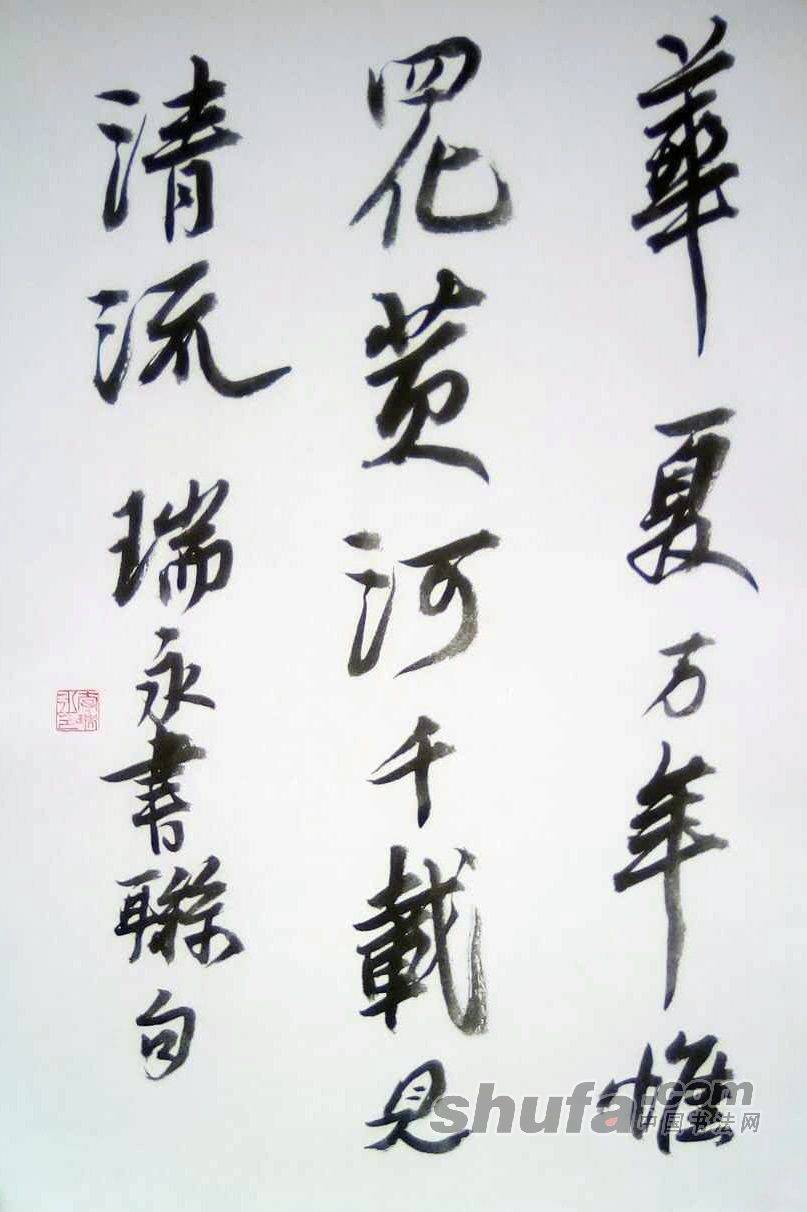 華夏万年
四化黄河千載見
清流 瑞永書聯句
shufa.com
中国书法网